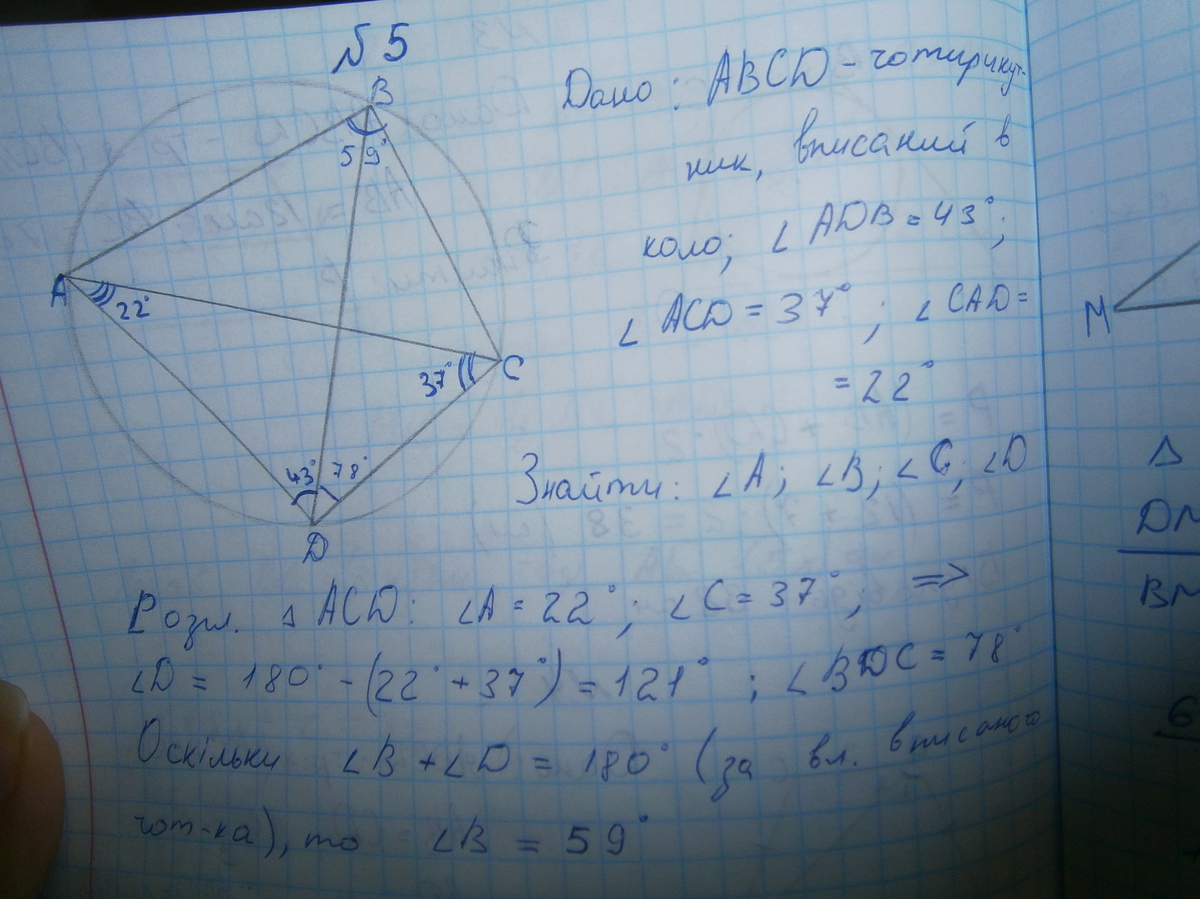 № 5
Дано: ABCD - чотирикут-
ник, вписаний в
коло; ∠ADB = 43°;
∠ACD = 37°; ∠CAD =
= 22°
Знайти: ∠A; ∠B; ∠C; ∠D
B
59°
A
22°
37°
C
43° 78°
D
Розгл. △ ACD: ∠A = 22°; ∠C = 37°; =>
∠D = 180° - (22° + 37°) = 121°; ∠BDC = 78°
Оскільки ∠B + ∠D = 180° (за вл. вписаного
чот-ка), то ∠B = 59°
M
△
DM
BM
6